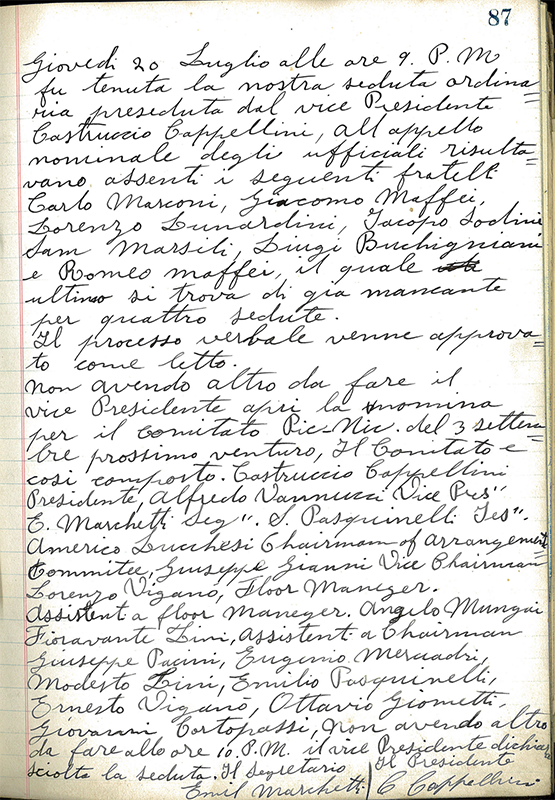 87
Giovedi 20 Luglio alle ore 9. P.M
fu tenuta la nostra seduta ordina=
ria preseduta dal vice Presidente
Castruccio Cappellini, all appello
nominale degli ufficiali risulta-
vano assenti i seguenti fratelli
Carlo Marconi, Giacomo Maffei,
Lorenzo Lunardini, Jacopo Sodini
Sam Marsili, Luigi Buchigniani
e Romeo Maffei, il quale
ultimo si trova di gia mancante
per quattro sedute.
Il processo verbale venne approva=
to come letto.
Non avendo altro da fare il
vice Presidente apri la nomina
per il Comitato Pic-Nic. del 3 settem
bre prossimo venturo, Il Comitato e
cosi composto. Castruccio Cappellini
Presidente, Alfredo Vannucci Vice Pres"
E. Marchetti Seg". S. Pasquinelli Tes".
Americo Lucchesi Chairmam of arrangement
Committee, Giuseppe Gianni Vice Chairman
Lorenzo Vigano, Floor Maneger.
Assistent a floor maneger. Angelo Mungai
Fioravante Lini, Assistent a Chairman
Giuseppe Pacini, Eugenio Mercadri,
Modesto Lini, Emilio Pasquinelli,
Ernesto Viganò, Ottavio Giometti,
Giovanni Cortopassi, Non avendo altro
da fare allo ore 10. P.M. il vice Presidente dichiar
sciolta la seduta. Il Segretario Il Presidente
Emil Marchetti C Cappellini